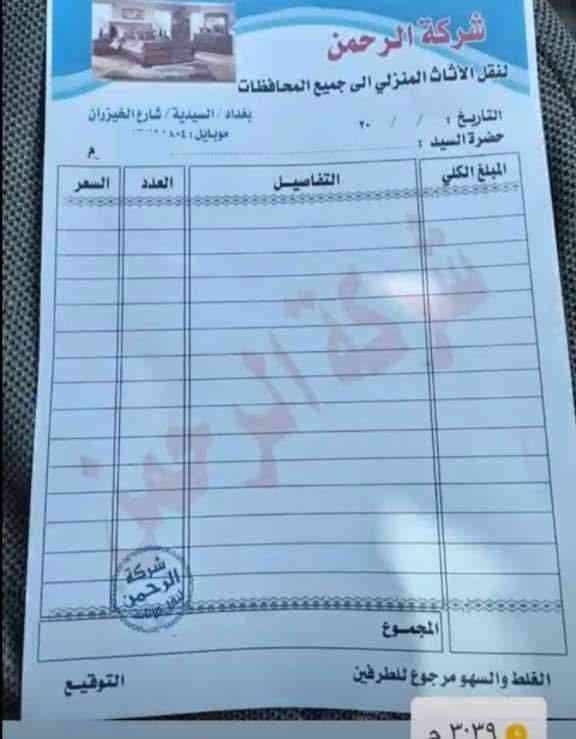 شركة الرحمن
لنقل الاثاث المنزلي الى جميع المحافظات
التاريخ : / / ٢٠
بغداد / السيدية / شارع الخيزران
حضرة السيد :
موبايل :
م
المبلغ الكلي التفاصيل العدد السعر
شركة الرحمن
شركة
الرحمن
المجموع
الغلط والسهو مرجوع للطرفين
التوقيع
٣:٣٩ م